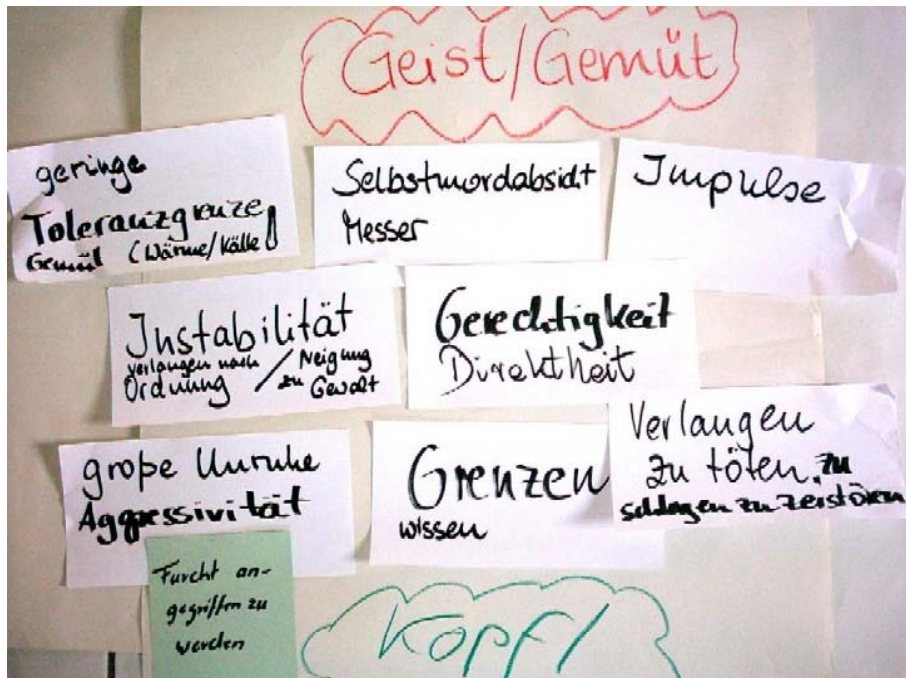 Geist/Gemüt
geringe
Toleranzgrenze
Gemüt (Wärme/Kälte)
Selbstmordabsicht
Messer
Impulse
Instabilität
verlangen nach / Neigung
Ordnung zu Gewalt
Gerechtigkeit
Direktheit
große Unruhe
Aggressivität
Grenzen
wissen
Verlangen
zu töten, zu
schlagen zu zerstören
Furcht an-
gegriffen zu
werden
Kopf/